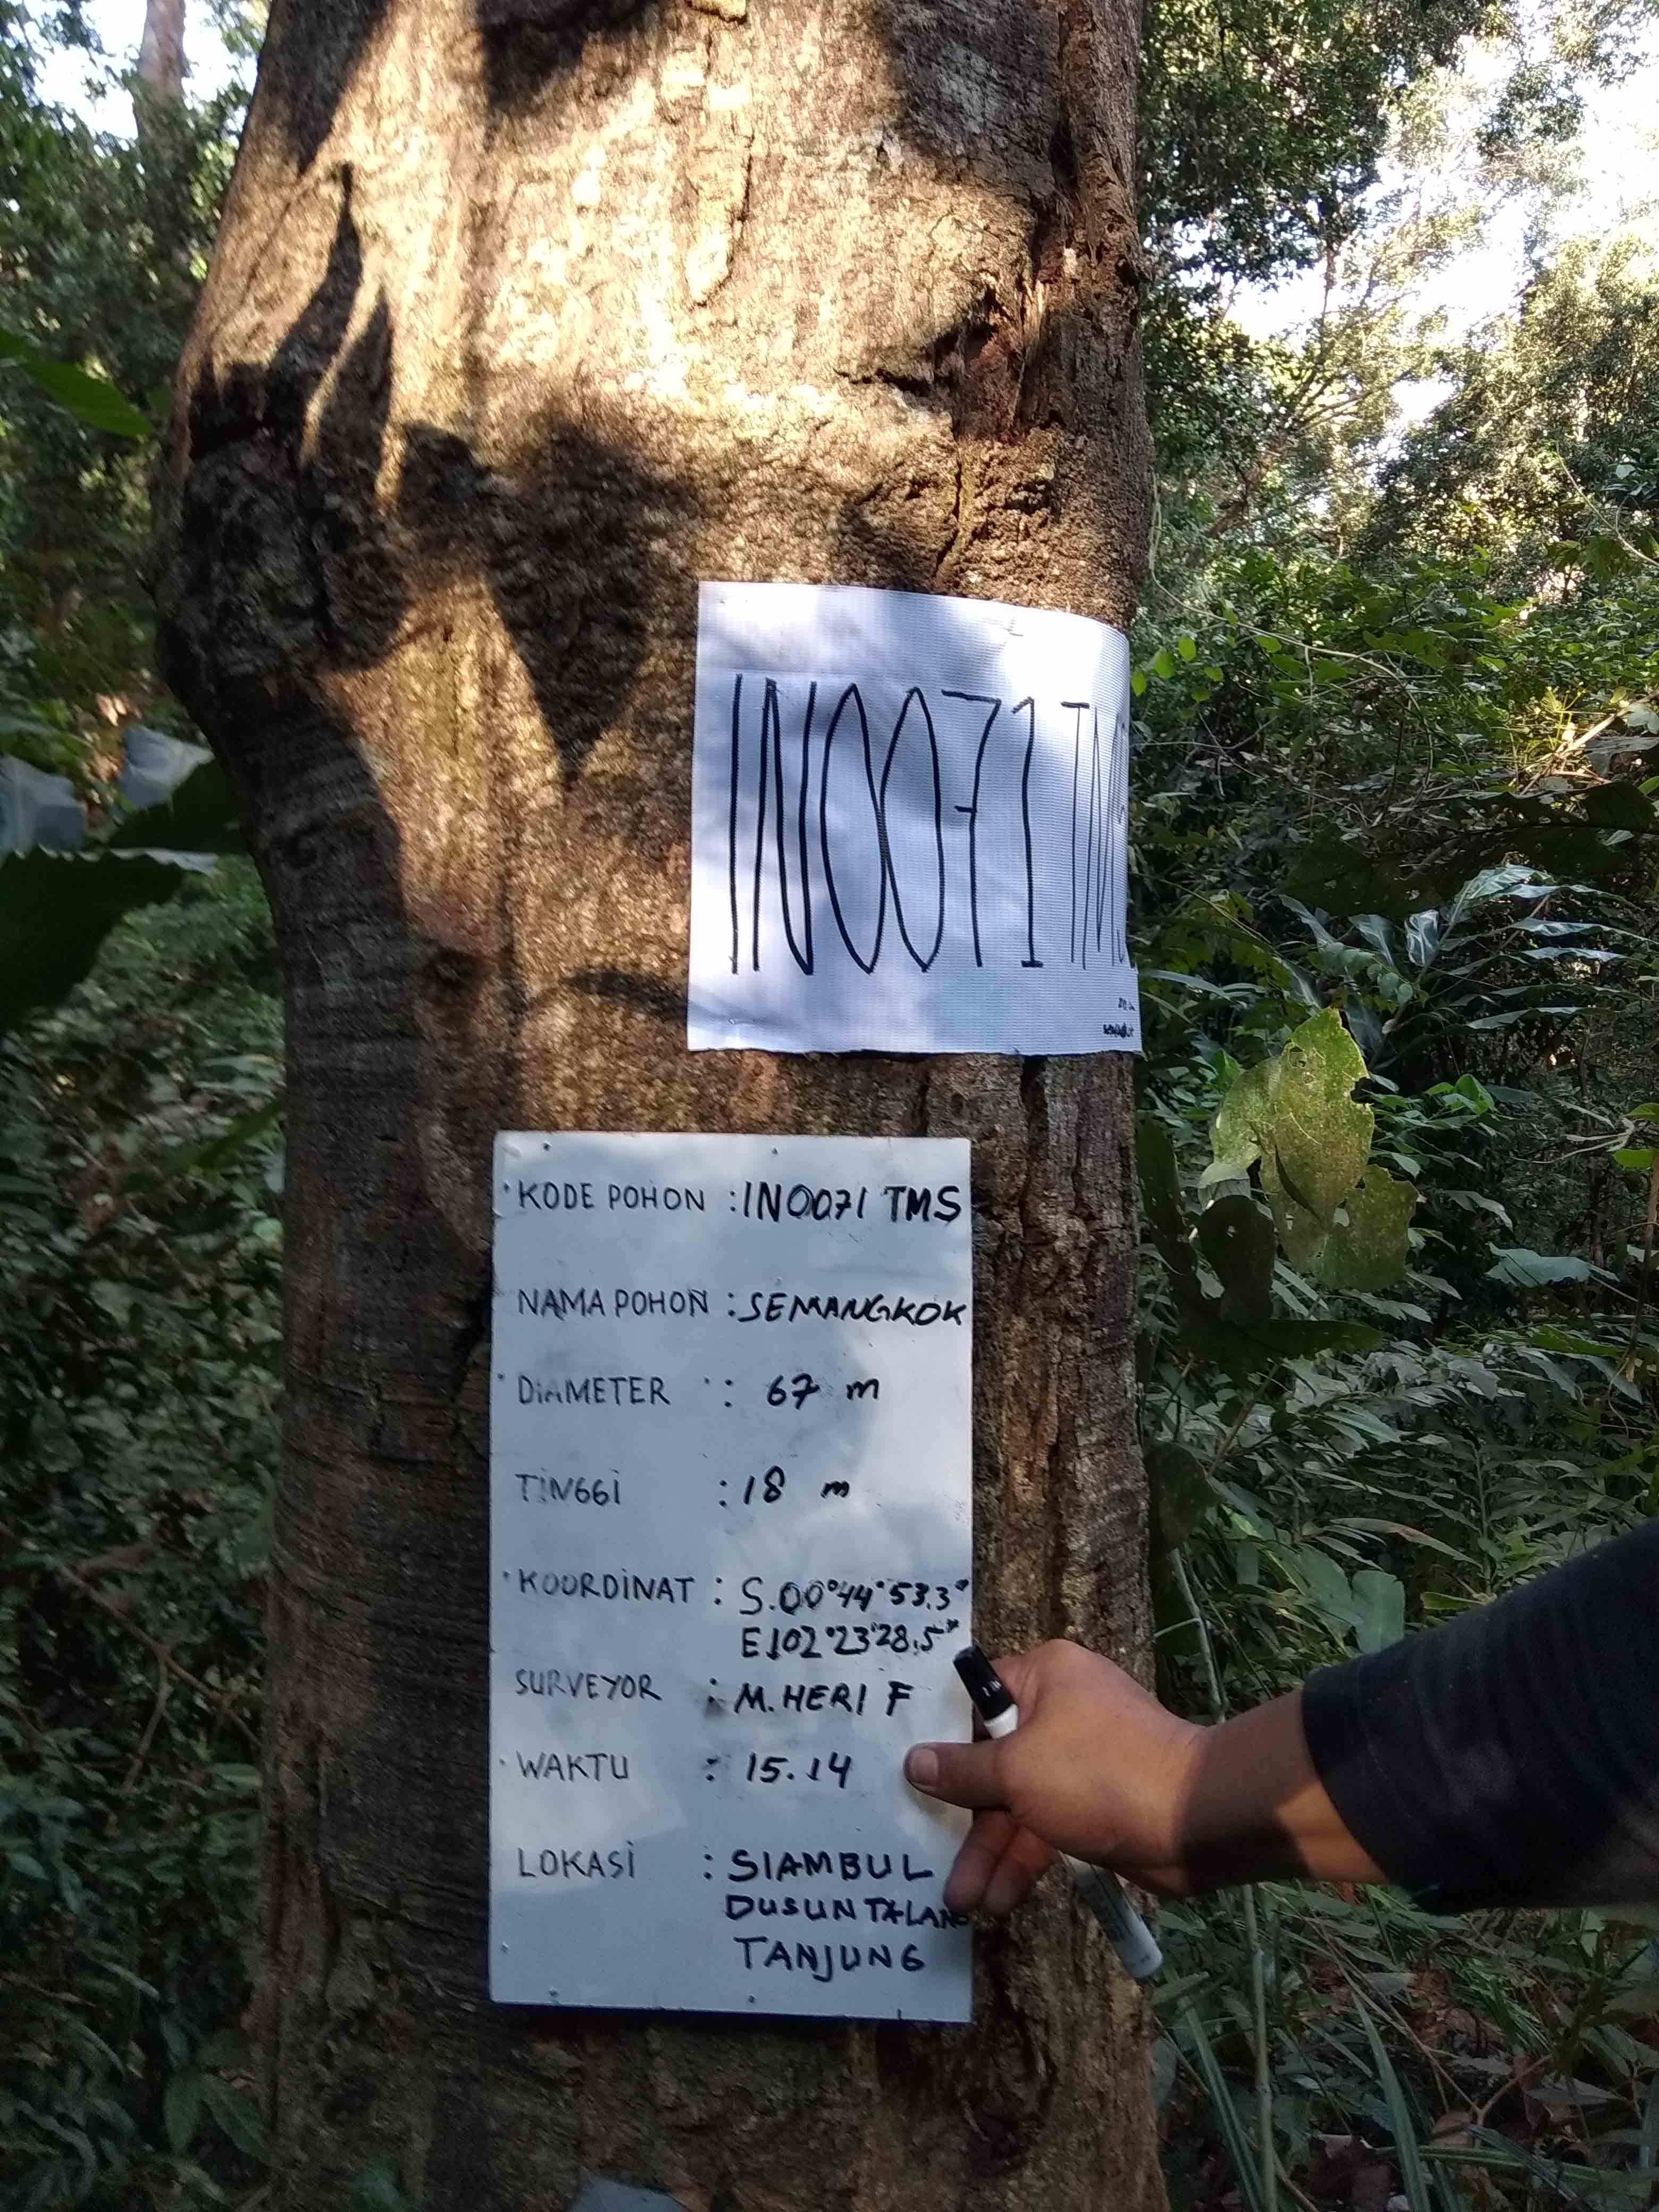 IN0071 TMS
KODE POHON : IN0071 TMS
NAMA POHON : SEMANGKOK
DIAMETER : 67 m
TINGGI : 18 m
KOORDINAT : S.00°44'53.3"
E102°23'28.5"
SURVEYOR : M. HERI F
WAKTU : 15.14
LOKASI : SIAMBUL
DUSUN TALANG
TANJUNG